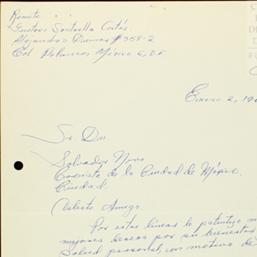 Remite
Gustavo Santaella Cortés
Alejandro Dumas #358-2
Col Polanco México 5, D.F.
Enero 2, 19
Sr Don
Salvador Novo
Cronista de la Ciudad de México,
Ciudad.
Amigo.
Por estas líneas le patentizo m
mejores deseos por su bienestar
Salud personal, con motivo de